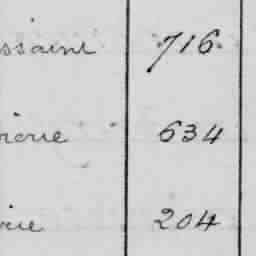 ssaint 716
rière 634
rie 204